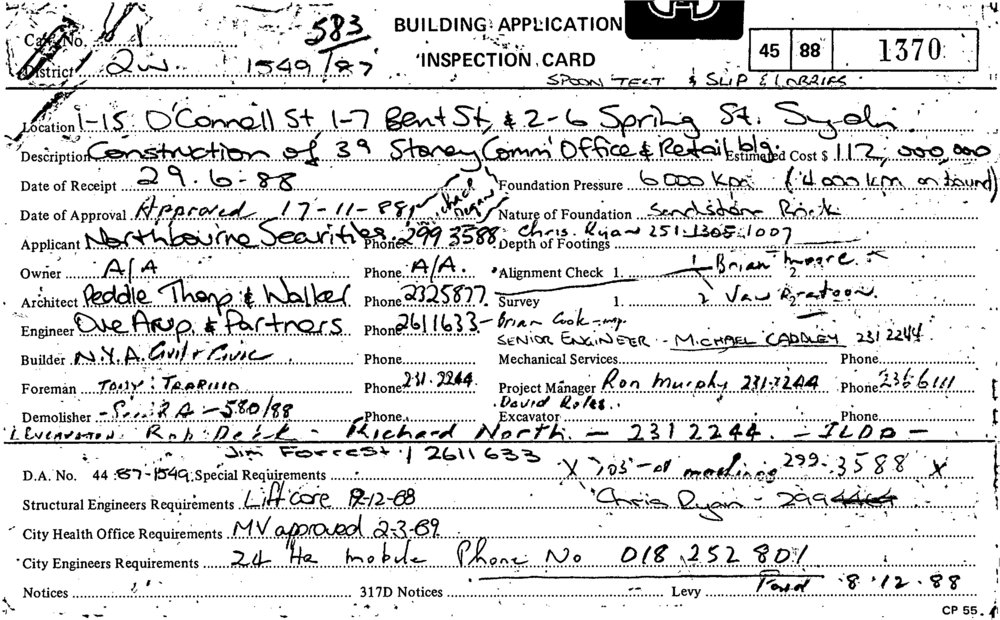 583 BUILDING APPLICATION
Card No. 1 45 88 1370
District 2W. 1549/87 INSPECTION CARD
SPOON TEST & SLIP & LORRIES
Location 1-15 O'Connell St 1-7 Bent St, & 2-6 Spring St. Sydn
Description Construction of 39 Storey Comm' Office & Retail bldg. Estimated Cost $ 112,000,000
Date of Receipt 29.6.88 Foundation Pressure 6000 kpa (4000 kpa on bound)
Date of Approval Approved 17-11-88 Nature of Foundation Sandstone Rock
Applicant Northbourne Securities Phone 299 3588 Chris Ryan 251 1305 1007
Depth of Footings
Owner A/A Phone A/A. Alignment Check 1. 1 Brian Moore 2.
Architect Peddle Thorp & Walker Phone 2325877 Survey 1. 2
Engineer Ove Arup & Partners Phone 2611633 - Brian Cook
SENIOR ENGINEER - MICHAEL CADDLEY 231 2244
Builder N.Y.A. Civil & Civic Phone Mechanical Services Phone
Foreman TONY Phone 231.2244 Project Manager Ron Murphy 231-2244 Phone 2356111
David Roles
Demolisher 580/88 Phone Excavator Phone
Rob - Richard North. - 231 2244.
Jim Forrest 1 2611633
D.A. No. 44 87-1549 Special Requirements X 299-3588 X
Structural Engineers Requirements Lift core 12-12-88 Chris Ryan - 299
City Health Office Requirements MV approved 2-3-89
City Engineers Requirements 24 Hr mobile Phone No 018 252 801
Notices 317D Notices Levy Paid 8.12.88
CP 55.